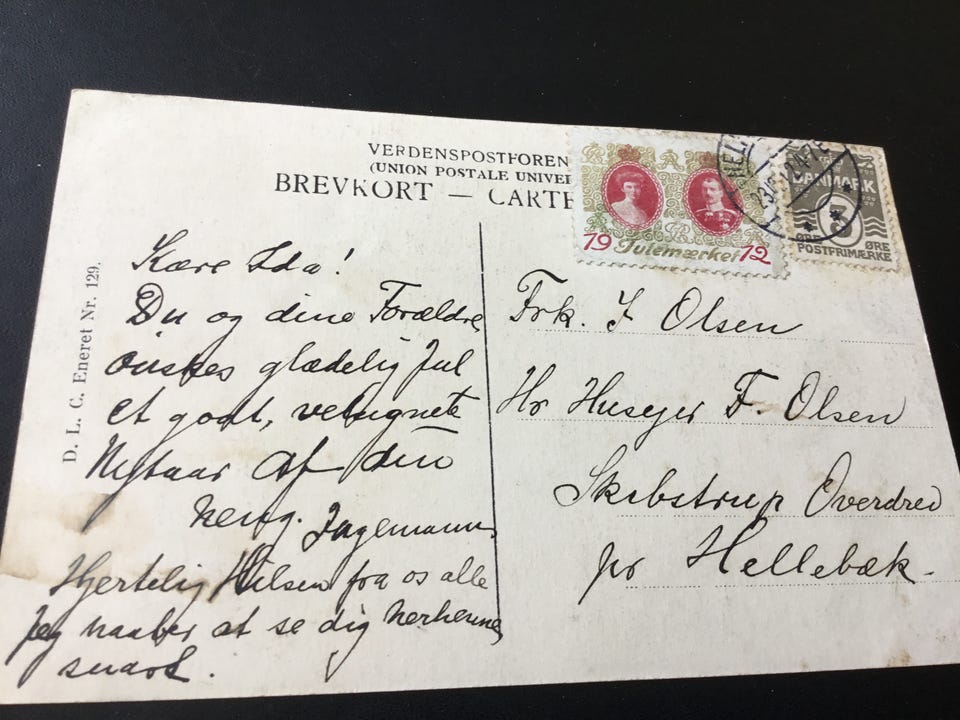 VERDENSPOSTFOREN
(UNION POSTALE UNIVER
BREVKORT — CARTE
19 Julemærket 12
DANMARK
3
ØRE ØRE
POSTFRIMÆRKE
D. L. C. Eneret Nr. 129.
Kære Ida!
Du og dine Forældre
ønskes glædelig Jul
et godt, velsignet
Nytaar af din
hengg. Ingemann
Hjertelig Hilsen fra os alle
Jeg haaber at se dig herhenne
snart.
Frk. I Olsen
Hr Husejer F. Olsen
Skibstrup Overdrev
pr Hellebæk.